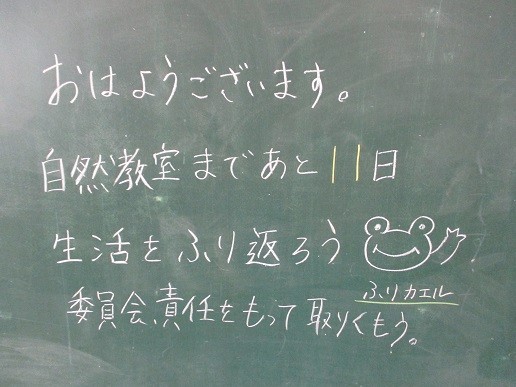 おはようございます。
自然教室まであと11日
生活をふり返ろう
ふりカエル
委員会、責任をもって取りくもう。